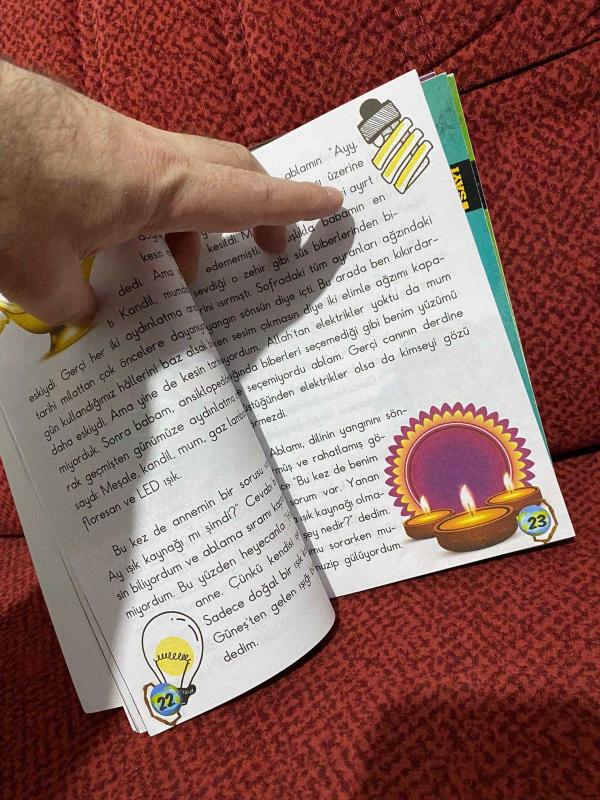 kesin
dedi. Ama
ı. Kandil, mumdan
eskiydi. Gerçi her iki aydınlatma
tarihi milattan çok öncelere dayanıyor
gün kullandığımız hâllerini baz alsak
daha eskiydi. Ama yine de kesin
miyorduk. Sonra babam,
rak geçmişten günümüze aydınlatma
saydı: Meşale, kandil, mum, gaz
floresan ve LED ışık.
Bu kez de annemin bir sorusu
Ay ışık kaynağı mı şimdi?” Cevabı
sin biliyordum ve ablama sıramı
miyordum. Bu yüzden heyecanla
anne. Çünkü kendisi
Sadece doğal bir ışık
Güneş’ten gelen ışığı
dedim.
22
ablamın “Ayy,
üzerine
ayırt
kesildi.
babamın en
edememişti.
sevdiği o zehir gibi süs biberlerinden bi-
rini ısırmıştı. Sofradaki tüm ayranları ağzındaki
yangın sönsün diye içti. Bu arada ben kıkırdar-
ken sesim çıkmasın diye iki elimle ağzımı kapa-
tıyordum. Allah’tan elektrikler yoktu da mum
ışığında biberleri seçemediği gibi benim yüzümü
de seçemiyordu ablam. Gerçi canının derdine
düştüğünden elektrikler olsa da kimseyi gözü
görmezdi.
Ablamı, dilinin yangınını sön-
müş ve rahatlamış gö-
“Bu kez de benim
sorum var. Yanan
ışık kaynağı olma-
şey nedir?” dedim.
sorarken mu-
muzip gülüyordum.
23
SAYI